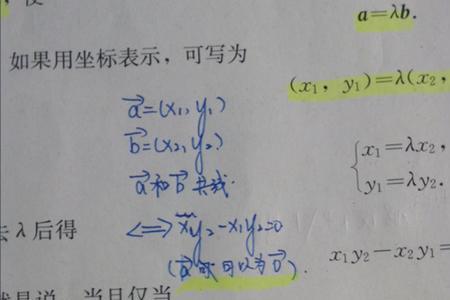 a=λb.
如果用坐标表示，可写为
(x₁, y₁)=λ(x₂,
a⃗=(x₁, y₁)
b⃗=(x₂, y₂)
x₁=λx₂,
a⃗和b⃗共线.
y₁=λy₂.
去λ后得
⟺ x₁y₂-x₁y₂=0
x₁y₂-x₂y₁=
可以为0⃗).
当且仅当